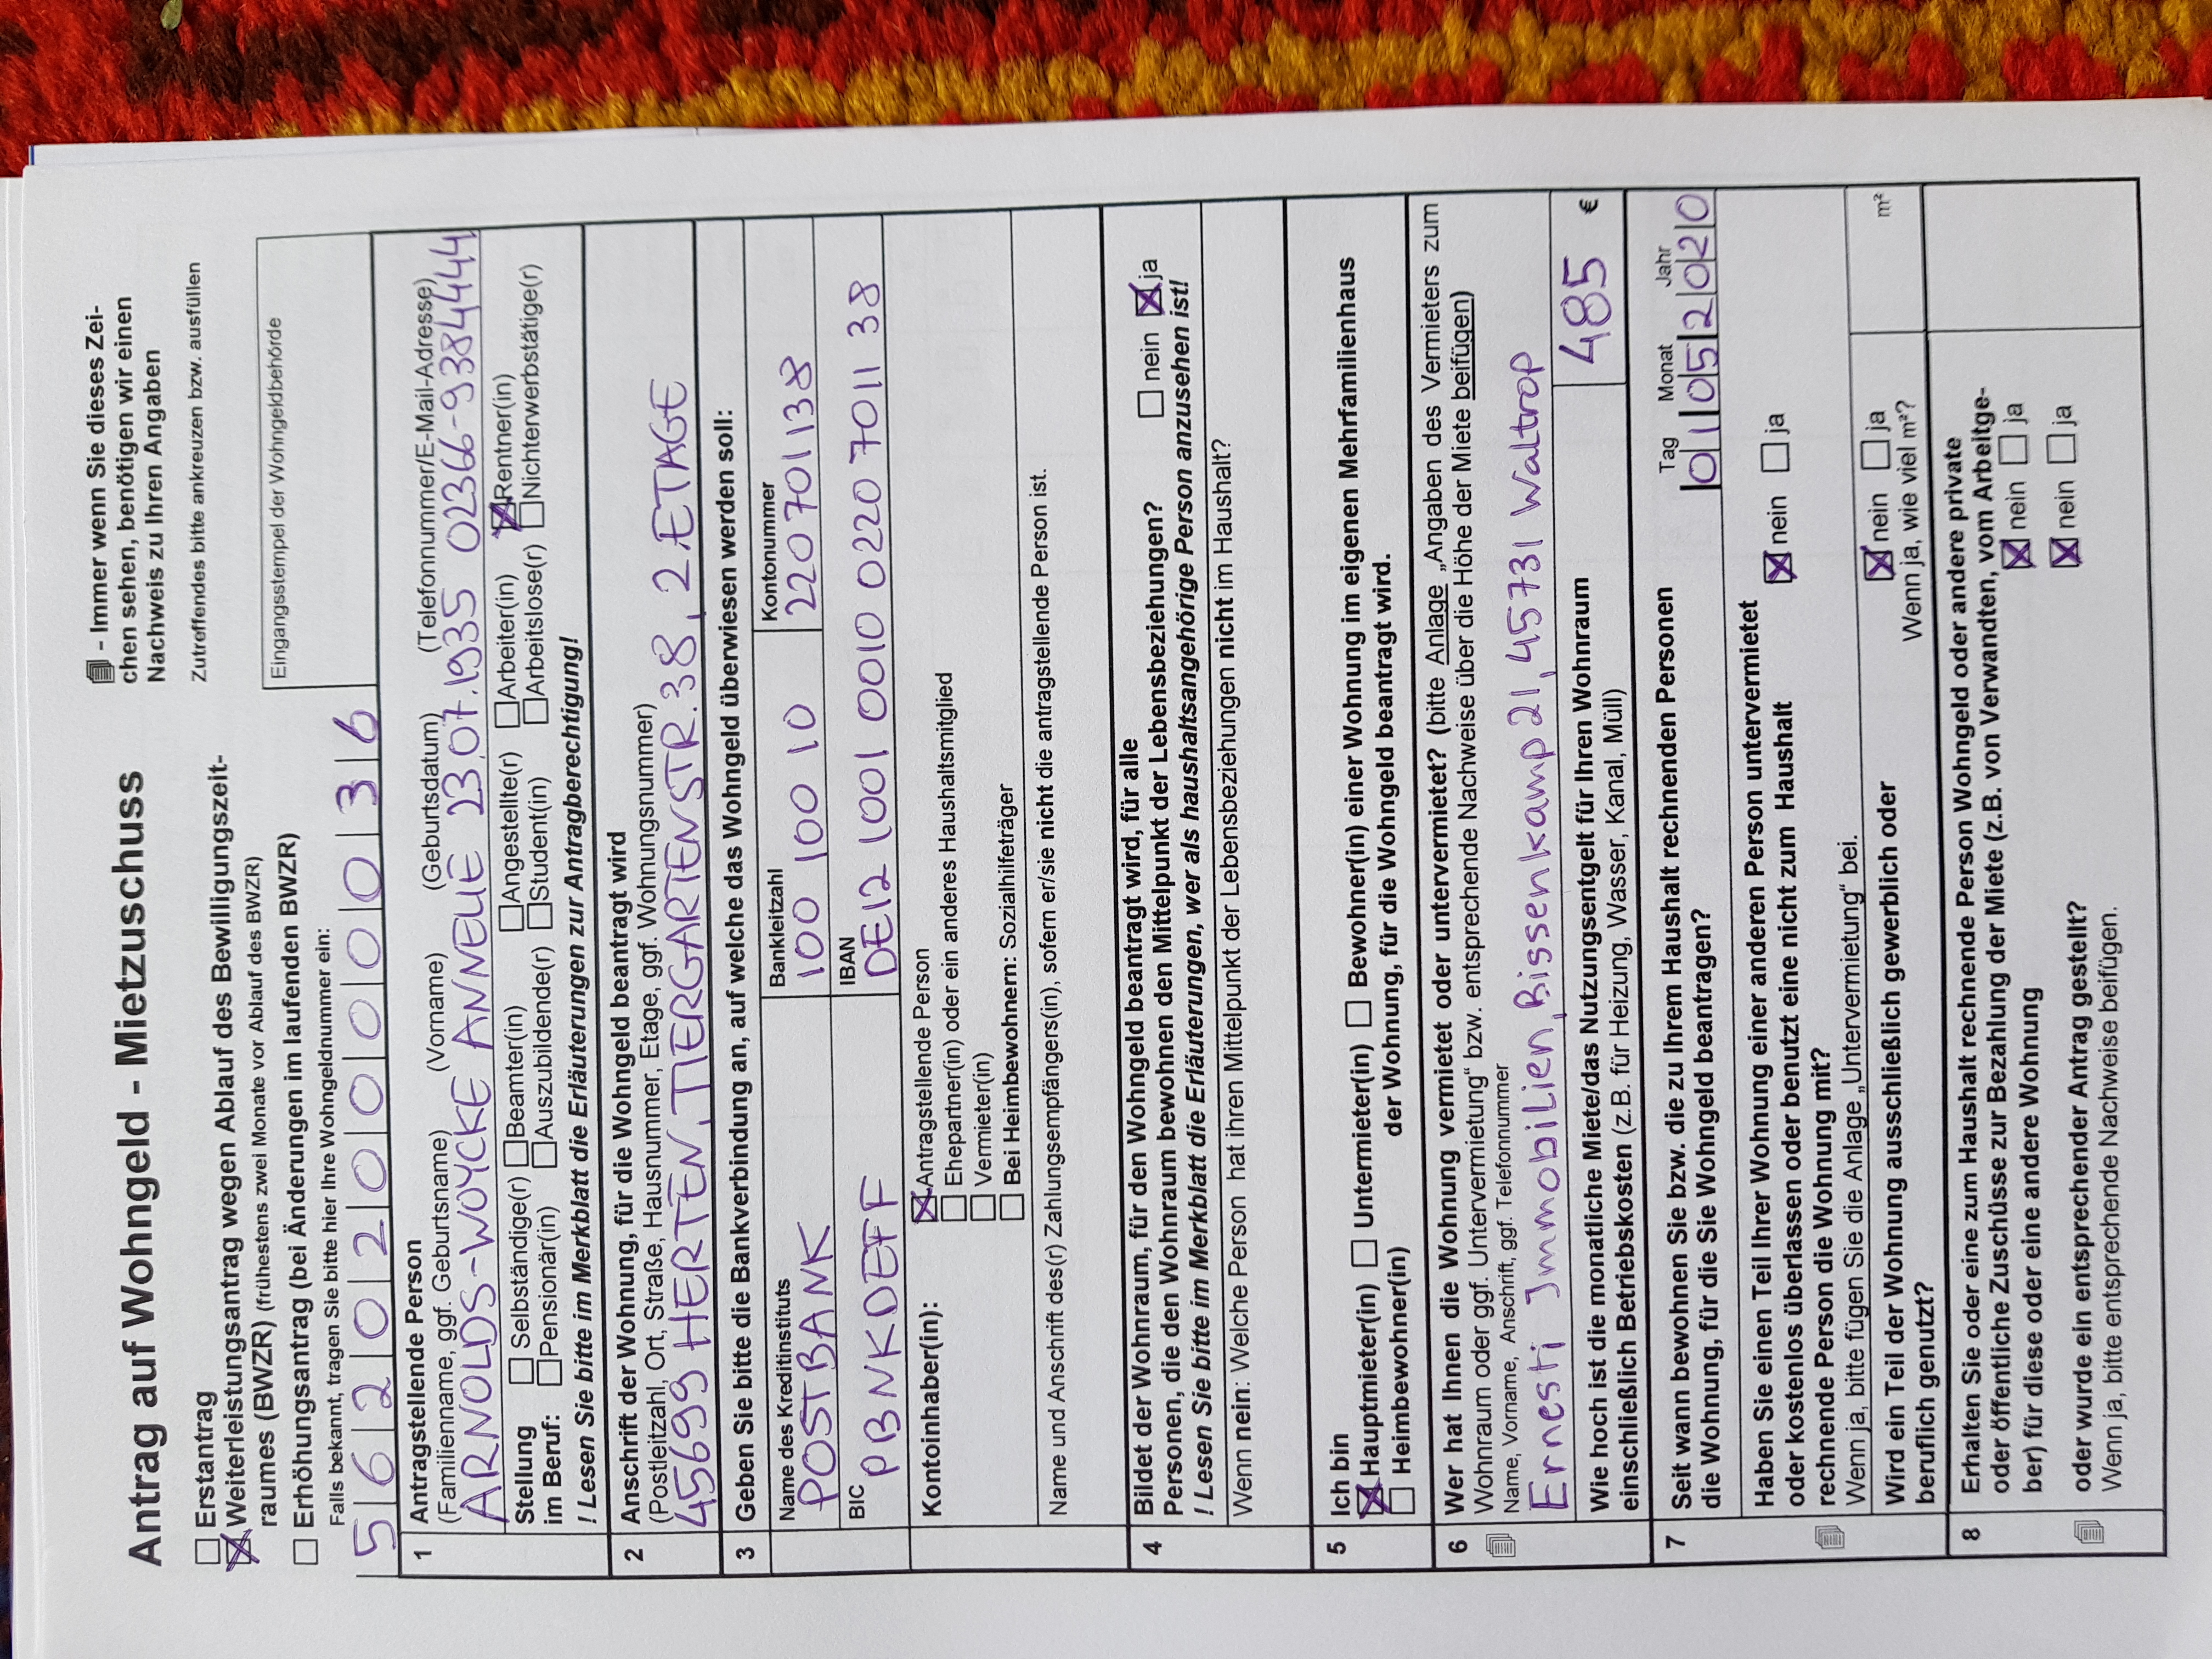 Antrag auf Wohngeld - Mietzuschuss
- Immer wenn Sie dieses Zei-
chen sehen, benötigen wir einen
Nachweis zu Ihren Angaben
Zutreffendes bitte ankreuzen bzw. ausfüllen
☐ Erstantrag
☒ Weiterleistungsantrag wegen Ablauf des Bewilligungszeit-
raumes (BWZR) (frühestens zwei Monate vor Ablauf des BWZR)
☐ Erhöhungsantrag (bei Änderungen im laufenden BWZR)
Falls bekannt, tragen Sie bitte hier Ihre Wohngeldnummer ein:
5 6 2 0 2 0 0 0 0 0 3 6
Eingangsstempel der Wohngeldbehörde
1 Antragstellende Person
(Familienname, ggf. Geburtsname) (Vorname) (Geburtsdatum) (Telefonnummer/E-Mail-Adresse)
ARNOLDS-WOYCKE ANNELIE 23.07.1935 02366-9384444
Stellung ☐ Selbständige(r) ☐ Beamter(in) ☐ Angestellte(r) ☐ Arbeiter(in) ☒ Rentner(in)
im Beruf: ☐ Pensionär(in) ☐ Auszubildende(r) ☐ Student(in) ☐ Arbeitslose(r) ☐ Nichterwerbstätige(r)
! Lesen Sie bitte im Merkblatt die Erläuterungen zur Antragberechtigung!
2 Anschrift der Wohnung, für die Wohngeld beantragt wird
(Postleitzahl, Ort, Straße, Hausnummer, Etage, ggf. Wohnungsnummer)
45699 HERTEN, TIERGARTENSTR. 38, 2. ETAGE
3 Geben Sie bitte die Bankverbindung an, auf welche das Wohngeld überwiesen werden soll:
Name des Kreditinstituts Bankleitzahl Kontonummer
POSTBANK 100 100 10 220701138
BIC IBAN
PBNKDEFF DE12 1001 0010 0220 7011 38
Kontoinhaber(in): ☒ Antragstellende Person
☐ Ehepartner(in) oder ein anderes Haushaltsmitglied
☐ Vermieter(in)
☐ Bei Heimbewohnern: Sozialhilfeträger
Name und Anschrift des(r) Zahlungsempfängers(in), sofern er/sie nicht die antragstellende Person ist.
4 Bildet der Wohnraum, für den Wohngeld beantragt wird, für alle
Personen, die den Wohnraum bewohnen den Mittelpunkt der Lebensbeziehungen? ☐ nein ☒ ja
! Lesen Sie bitte im Merkblatt die Erläuterungen, wer als haushaltsangehörige Person anzusehen ist!
Wenn nein: Welche Person hat ihren Mittelpunkt der Lebensbeziehungen nicht im Haushalt?
5 Ich bin
☒ Hauptmieter(in) ☐ Untermieter(in) ☐ Bewohner(in) einer Wohnung im eigenen Mehrfamilienhaus
☐ Heimbewohner(in) der Wohnung, für die Wohngeld beantragt wird.
6 Wer hat Ihnen die Wohnung vermietet oder untervermietet? (bitte Anlage „Angaben des Vermieters zum
Wohnraum oder ggf. Untervermietung“ bzw. entsprechende Nachweise über die Höhe der Miete beifügen)
Name, Vorname, Anschrift, ggf. Telefonnummer
Ernesti Immobilien, Bissenkamp 21, 45731 Waltrop
Wie hoch ist die monatliche Miete/das Nutzungsentgelt für Ihren Wohnraum
einschließlich Betriebskosten (z.B. für Heizung, Wasser, Kanal, Müll) 485 €
7 Seit wann bewohnen Sie bzw. die zu Ihrem Haushalt rechnenden Personen
die Wohnung, für die Sie Wohngeld beantragen?
Tag Monat Jahr
0 1 0 5 2 0 2 0
Haben Sie einen Teil Ihrer Wohnung einer anderen Person untervermietet
oder kostenlos überlassen oder benutzt eine nicht zum Haushalt
rechnende Person die Wohnung mit? ☒ nein ☐ ja
Wenn ja, bitte fügen Sie die Anlage „Untervermietung“ bei.
Wird ein Teil der Wohnung ausschließlich gewerblich oder
beruflich genutzt? ☒ nein ☐ ja
Wenn ja, wie viel m²? m²
8 Erhalten Sie oder eine zum Haushalt rechnende Person Wohngeld oder andere private
oder öffentliche Zuschüsse zur Bezahlung der Miete (z.B. von Verwandten, vom Arbeitge-
ber) für diese oder eine andere Wohnung ☒ nein ☐ ja
oder wurde ein entsprechender Antrag gestellt? ☒ nein ☐ ja
Wenn ja, bitte entsprechende Nachweise beifügen.